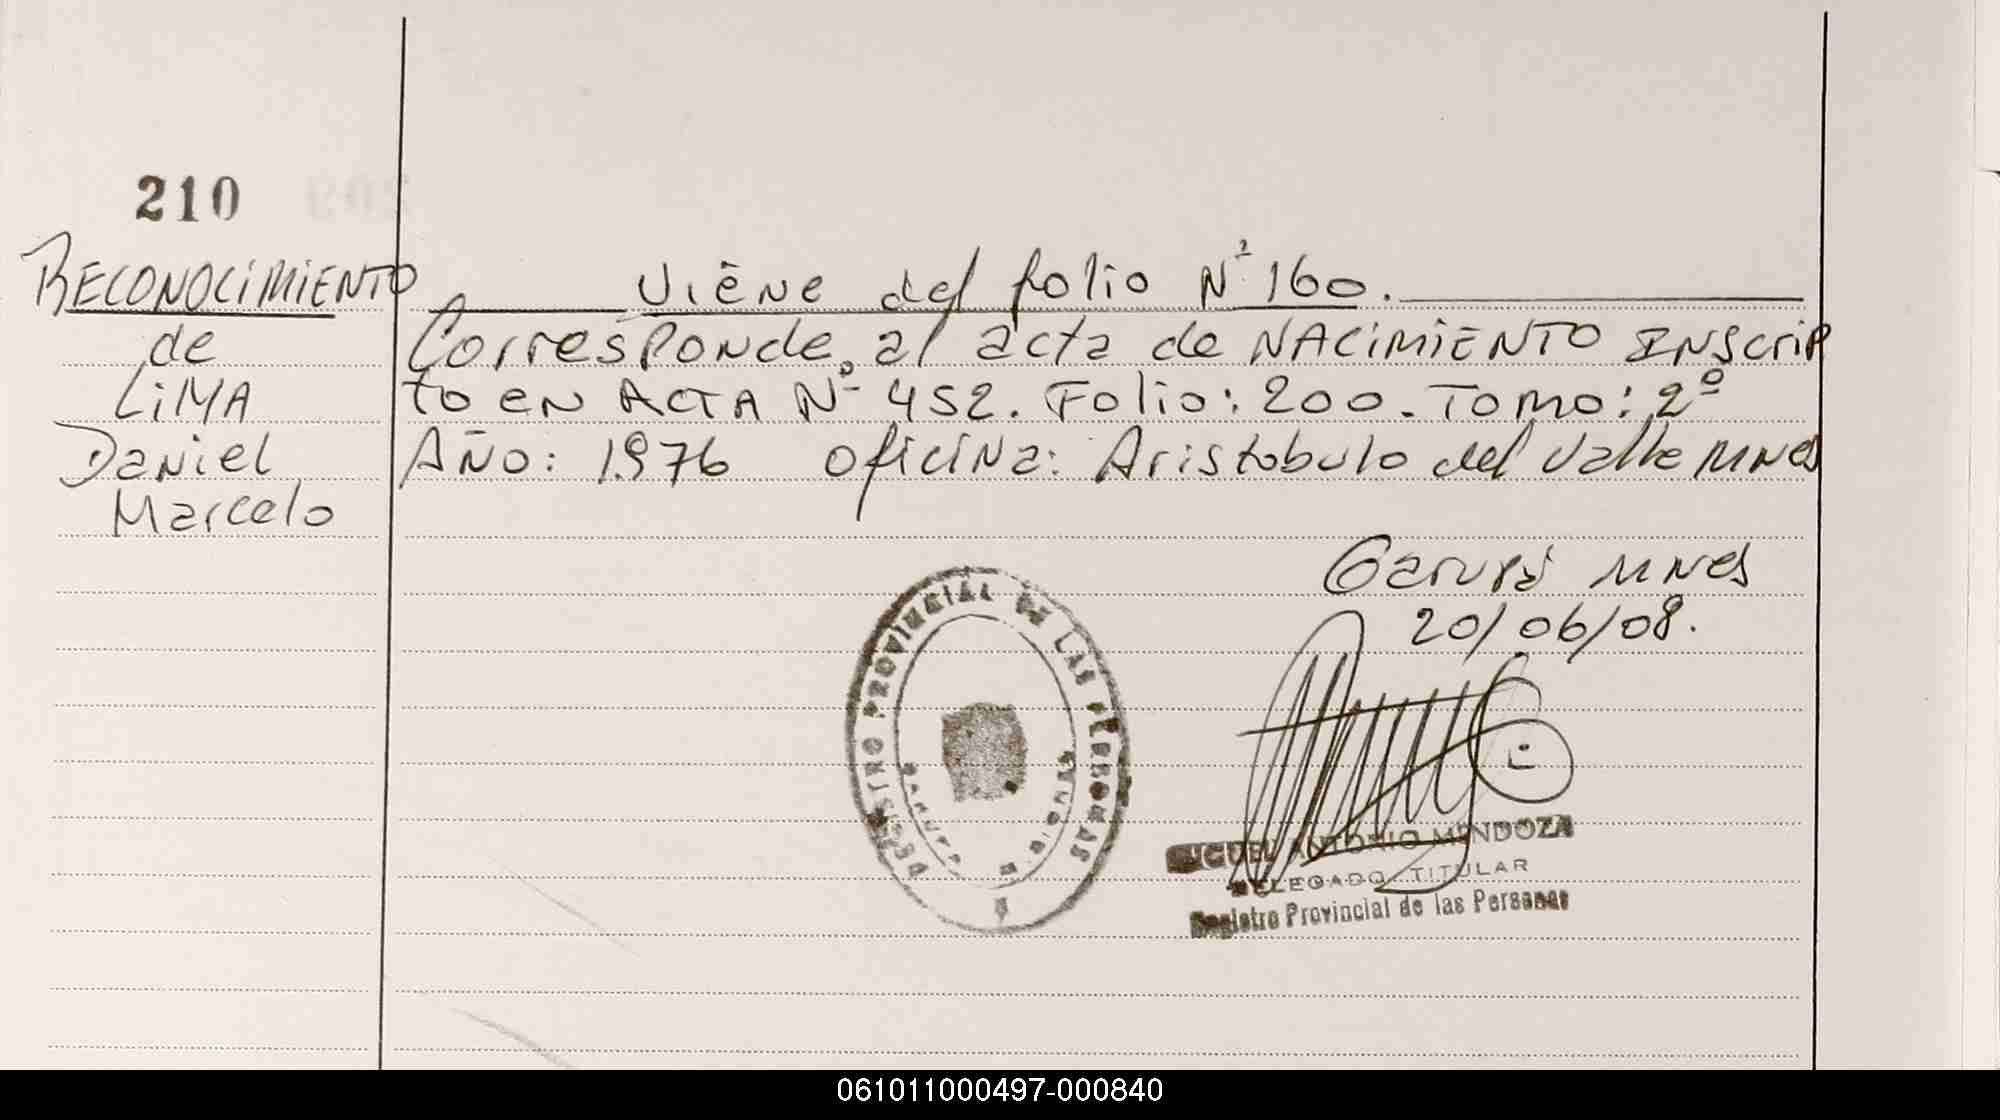 210
RECONOCIMIENTO
de
LIMA
Daniel
Marcelo
Viene del folio Nº 160.
Corresponde al acta de NACIMIENTO INScrip
to en ACTA Nº 452. Folio: 200. Tomo: 2º
Año: 1.976 oficina: Aristobulo del Valle Mnes
Garupá Mnes
20/06/08.
REGISTRO PROVINCIAL DE LAS PERSONAS
GARUPA
MIGUEL ANTONIO MENDOZA
DELEGADO TITULAR
Registro Provincial de las Personas
061011000497-000840